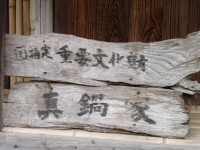 国指定重要文化財
真鍋家